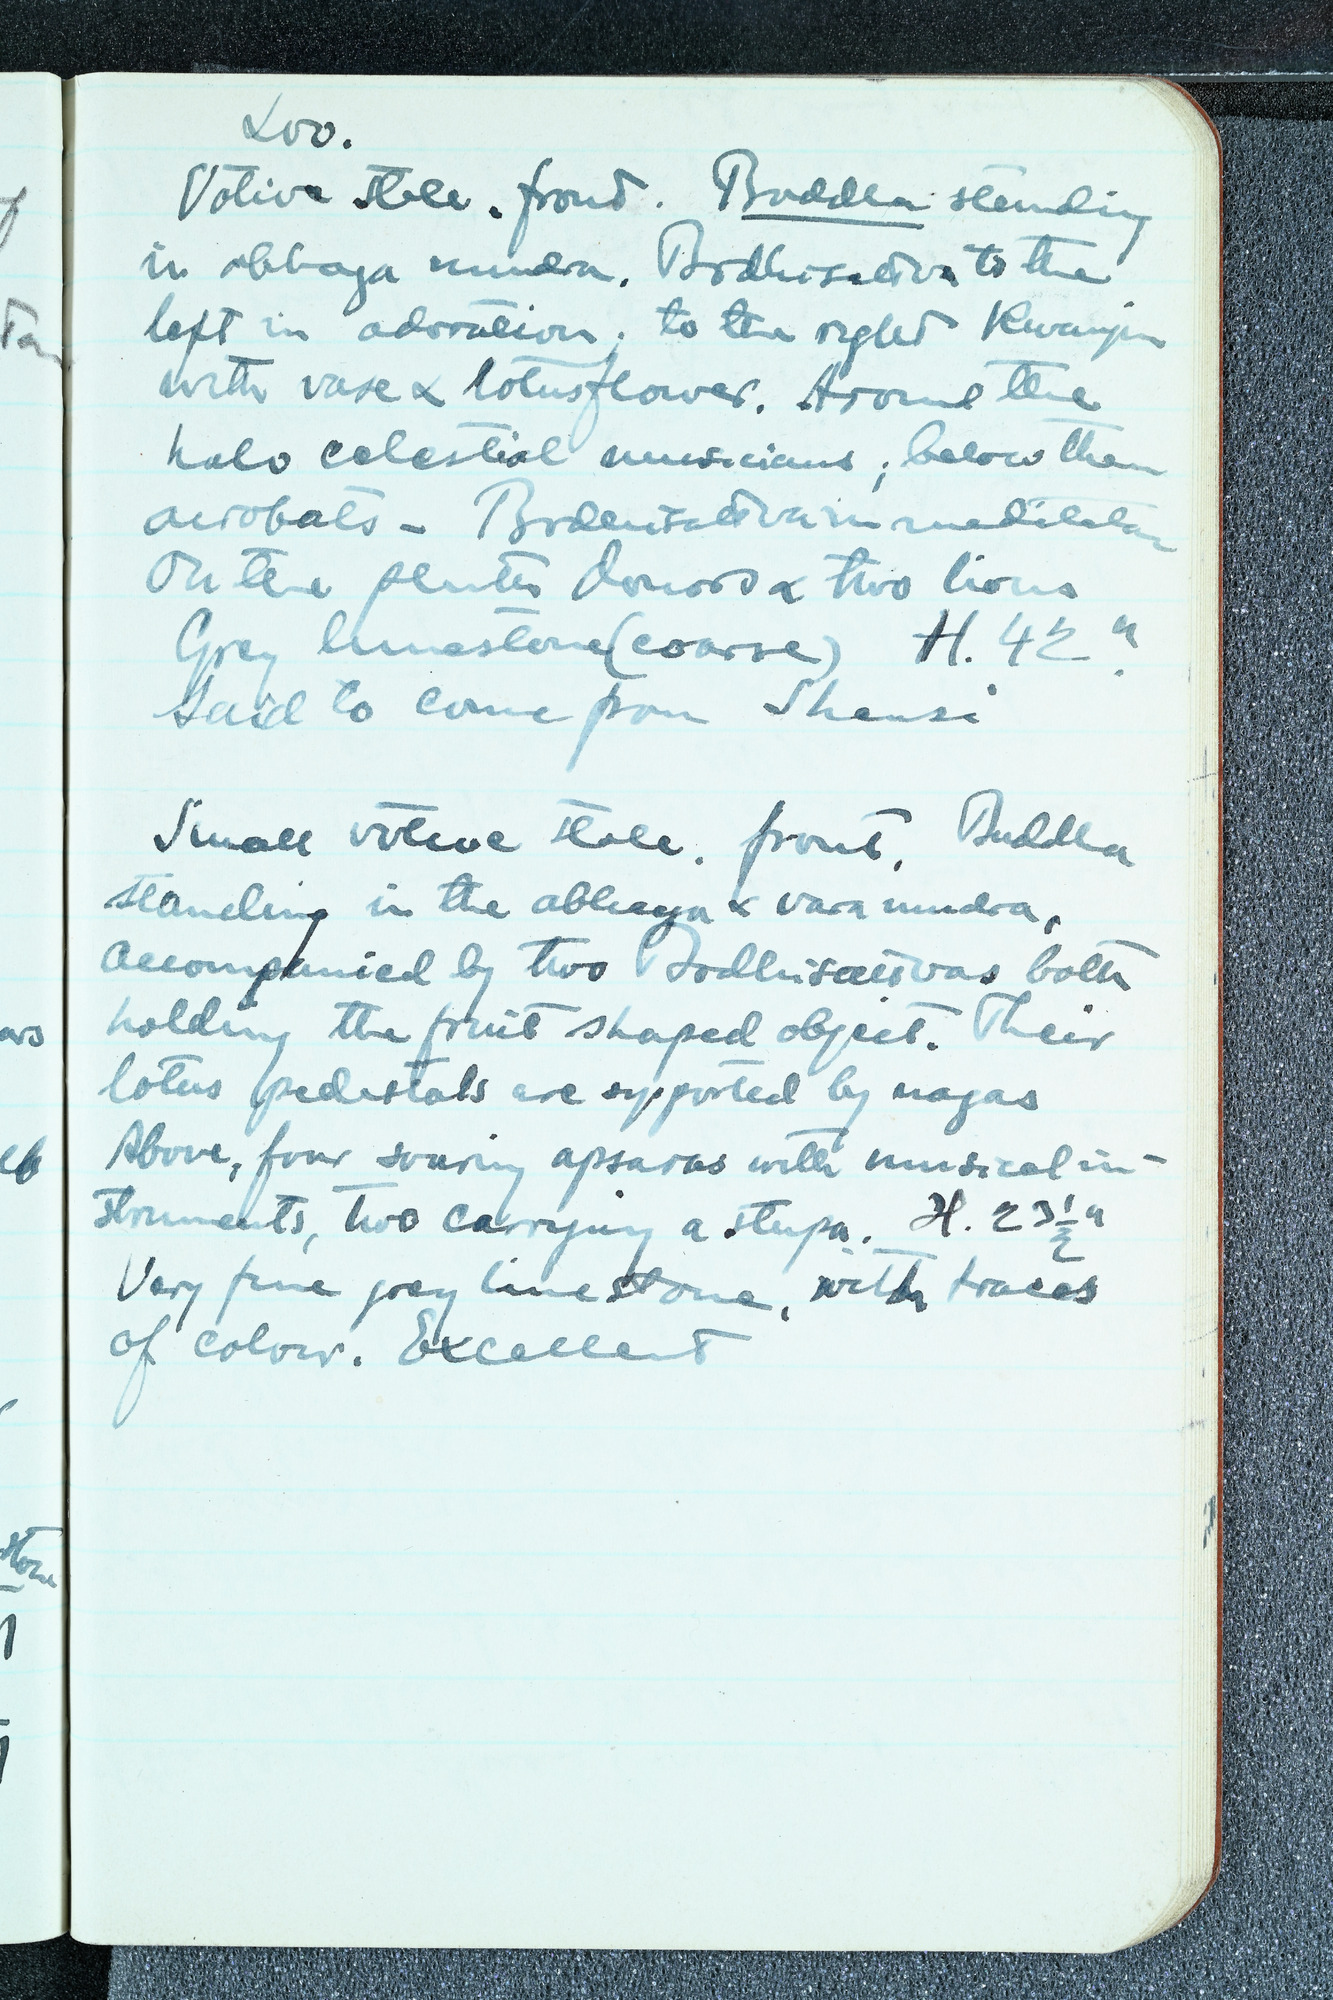 Loo.
Votive stele. front. Buddha standing
in abhaya mudra. Bodhisattva to the
left in adoration, to the right Kwanyin
with vase & lotusflower. Around the
halo celestial musicians; below them
acrobats - Bodhisattva in meditation
On the plinth donors & two lions
Grey limestone (coarse) H. 42"
Said to come from Shensi
Small votive stele. front. Buddha
standing in the abhaya & vara mudra,
accompanied by two Bodhisattvas both
holding the fruit shaped object. Their
lotus pedestals are supported by nagas
Above, four soaring apsaras with musical in-
struments, two carrying a stupa. H. 23½"
Very fine grey limestone, with traces
of colour. Excellent